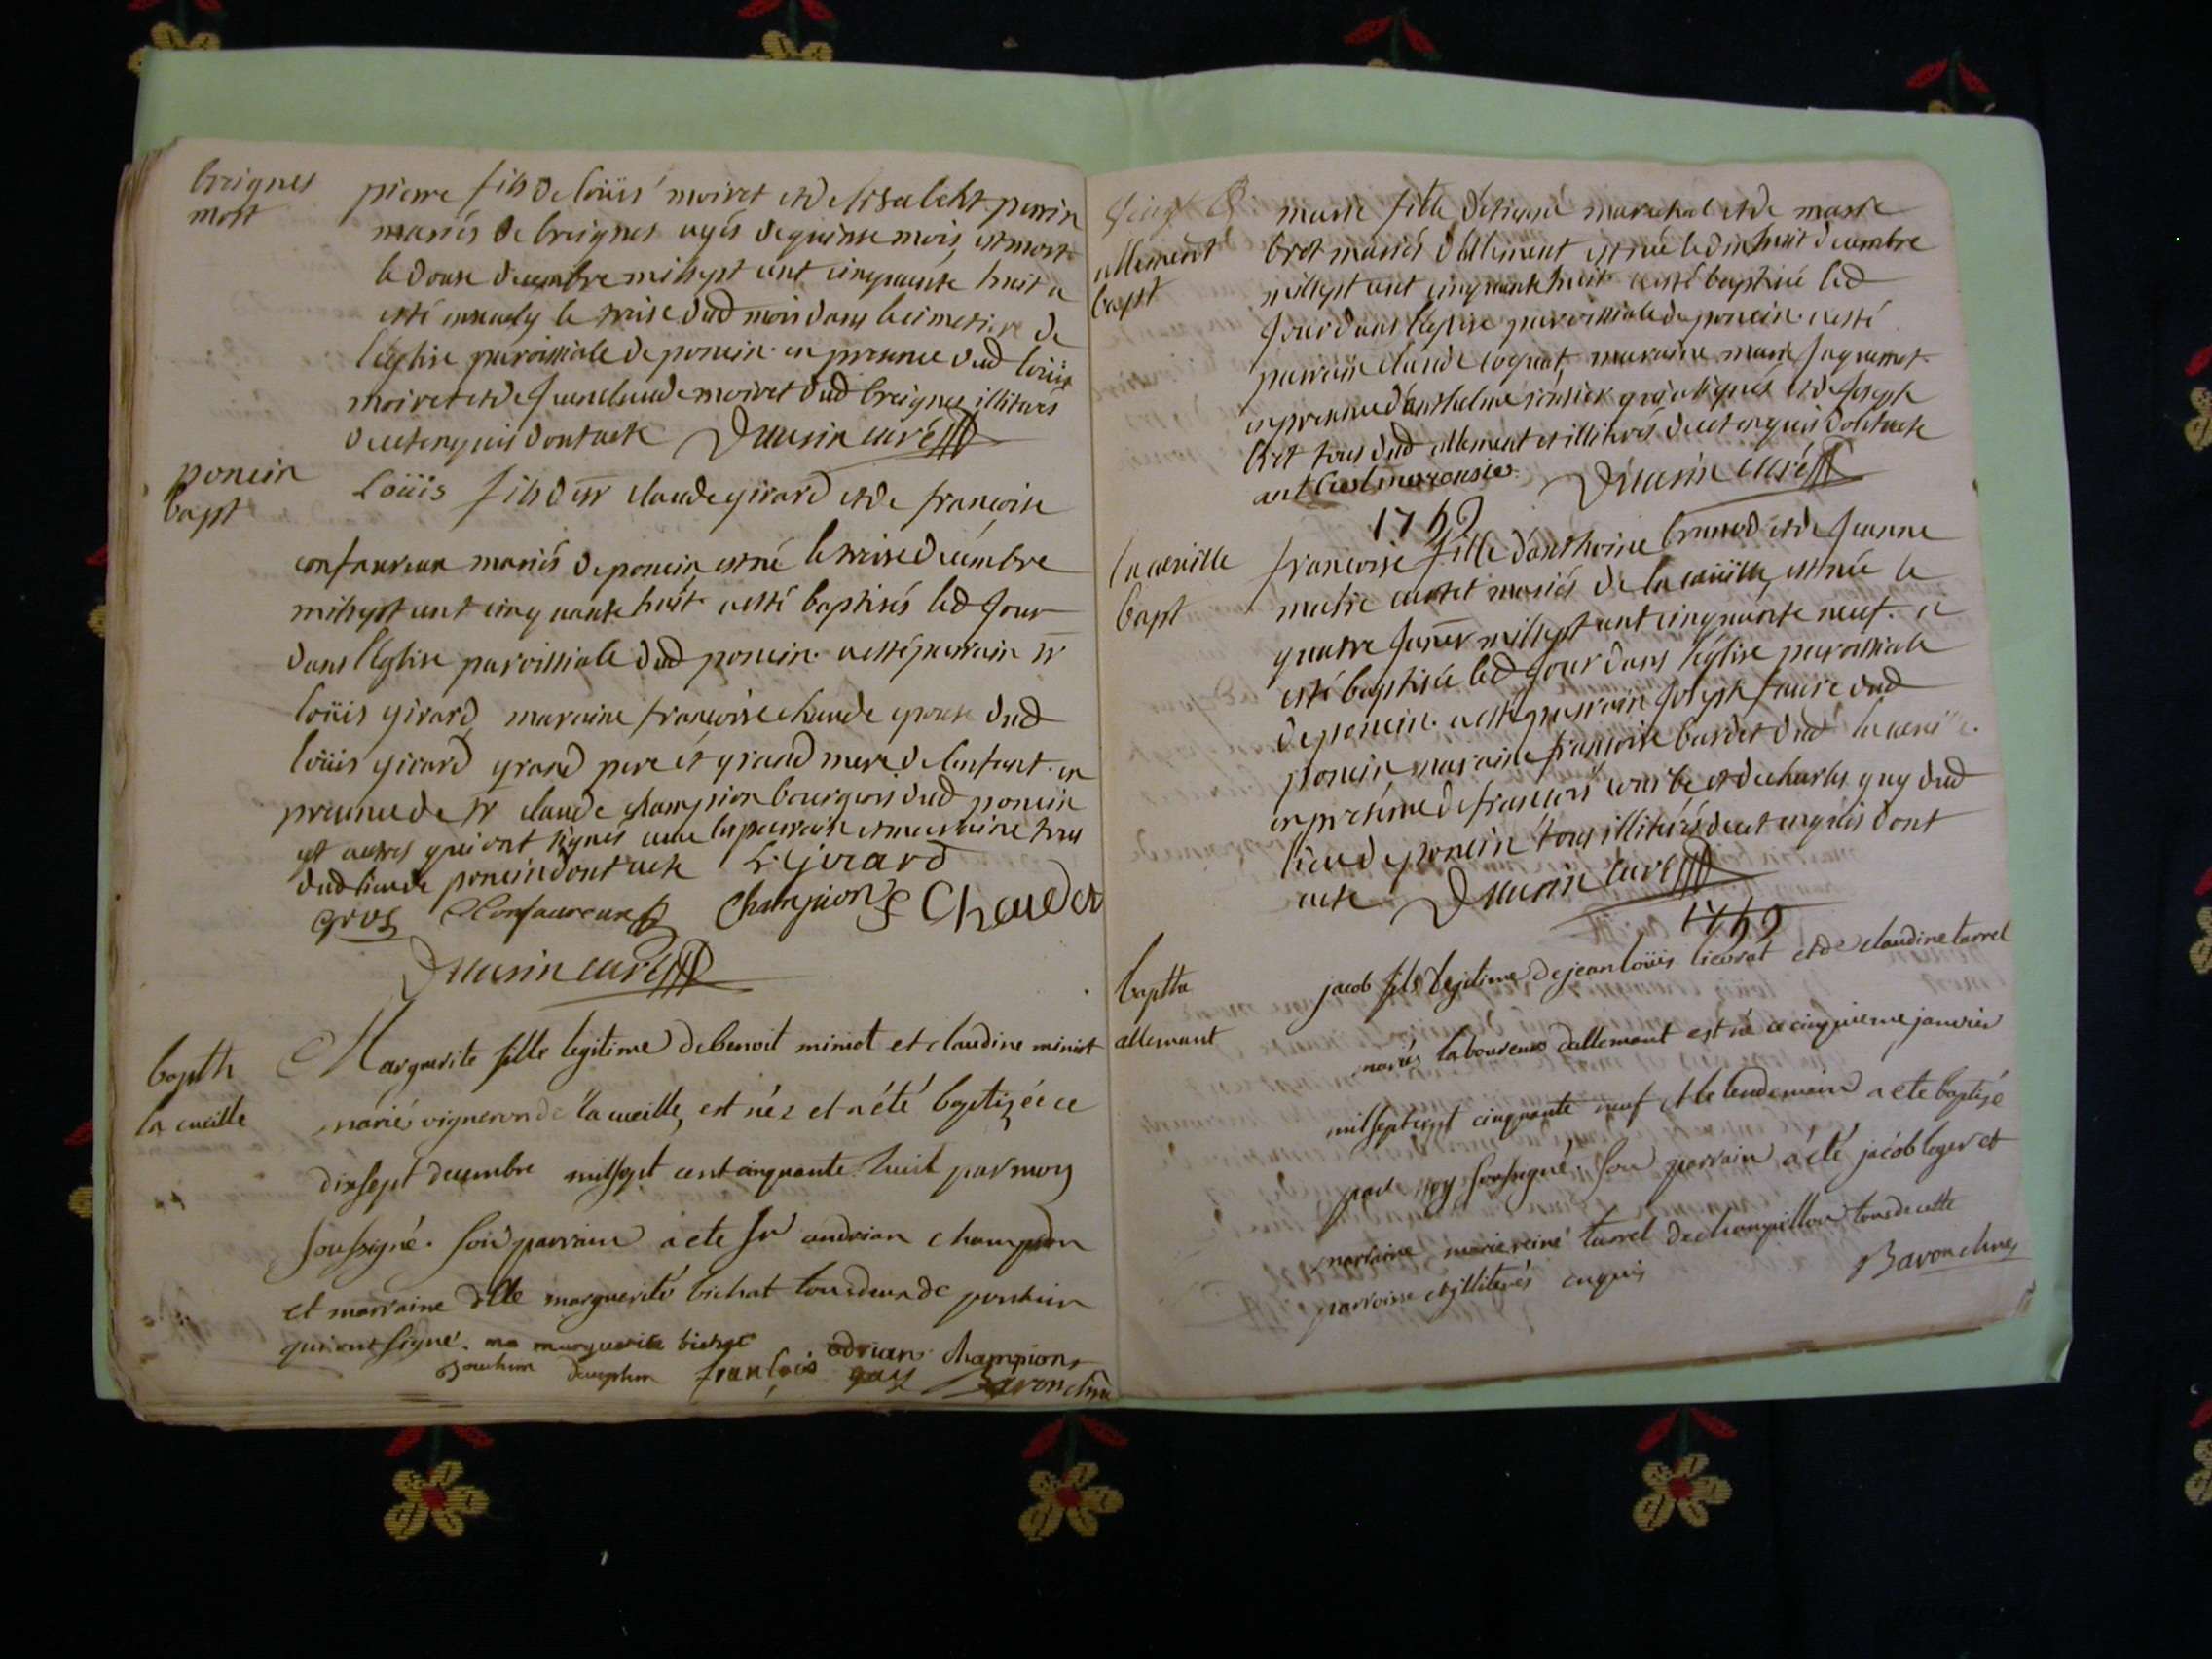 breignes
mort
pierre fils de loüis moiret et delisabeht perrin
mariés de breignes agés de quinse mois, est mort
le douse decembre mil sept cent cinquante huit a
esté ensevely le treise dud mois dans le cimetiere de
l'eglise paroissiale de poncin en presence dud loüis
moiret et de Jean claude moiret dud breignes illiterés
de ce enquis dont acte curé
poncin
bapt
Loüis fils de sr claude girard et de françoise
confavreux mariés de poncin est né le treise decembre
mil sept cent cinquante huit a esté baptisés led Jour
dans l'Eglise paroissiale dud poncin a esté parrain sr
loüis girard, maraine françoise chaude epouse dud
loüis girard grand pere et grand mere de l'enfant en
presence de sr claude champion bourgeois dud poncin
et autres qui ont signés avec les parrain et marraine tous
dud lieu de poncin dont acte L. girard
gros Confavreux Champion F Chaude
curé
baptt
la cueille
Marguerite fille legitime de benoit miniot et claudine miniot
marié vigneron de la cueille, est née et a été baptizée ce
dixsept decembre milsept cent cinquante huit par moy
soussigné. son parrain a ete sr andrian champion
et marraine dlle marguerite bichat tous deux de
qui ont signé. marguerite bichat adrian champion
françois
allement
bapt
marie fille d'etienne marechal et de marie
bret mariés d'allement est née le dixhuit decembre
mil sept cent cinquante huit a esté baptisé led
Jour dans l'eglise paroissiale de poncin a esté
parrain claude coquat, maraine marie Jaquemet
en presence d'anthelme et de Joseph
bret tous dud allement et illiterés de ce enquis dont acte
curé
1759
la cueille
bapt
françoise fille d'anthoine brunod et de Jeanne
marie mariés de la cueille, est née le
quatre janvr mil sept cent cinquante neuf. a
esté baptisée led Jour dans l'église paroissiale
de poncin a esté parrain Joseph faure dud
poncin, maraine françoise bardet dud la cueille.
en presence de françois et de charles guy dud
lieu de poncin tous illiterés de ce enquis dont
acte curé
1759
baptta
allemant
jacob fils legitime de jean loüis lievrat et de claudine tarrel
mariés laboureurs dallemant est né ce cinquieme janvier
milseptcent cinquante neuf et le lendemain a ete baptizé
par moy soussigné. son parrain a été jacob loger et
marraine marie reine tarrel de champillon tous de cette
parroisse et illiterés enquis